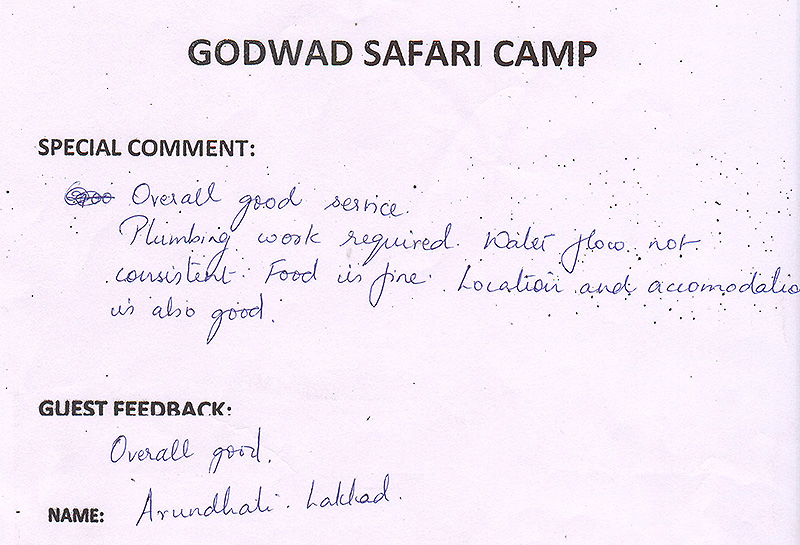 GODWAD SAFARI CAMP
SPECIAL COMMENT:
Overall good service.
Plumbing work required. Water flow not
consistent. Food is fine. Location and accomodatio
is also good.
GUEST FEEDBACK:
Overall good.
NAME: Arundhati. Lakhad.